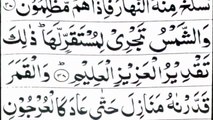 نَسْلَخُ مِنْهُ النَّهَارَ فَاِذَا هُمْ مُّظْلِمُوْنَ
وَالشَّمْسُ تَجْرِيْ لِمُسْتَقَرٍّ لَّهَا ؕ ذٰلِكَ
تَقْدِيْرُ الْعَزِيْزِ الْعَلِيْمِ ۝۳۸ وَالْقَمَرَ
قَدَّرْنٰهُ مَنَازِلَ حَتّٰى عَادَ كَالْعُرْجُوْنِ